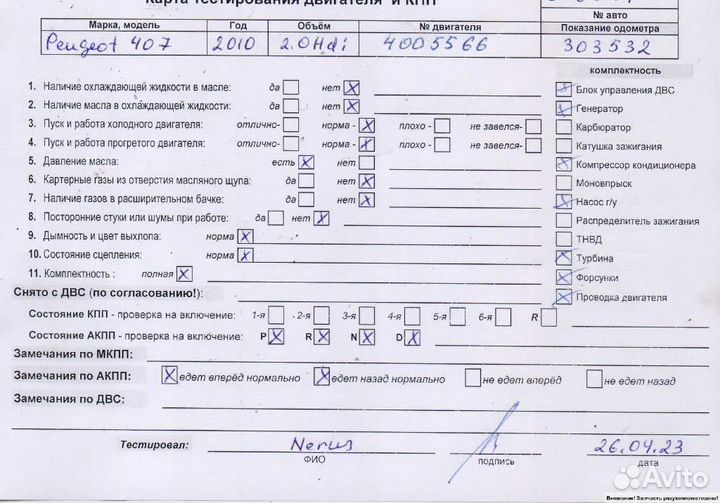 Карта тестирования двигателя и КПП
№ авто
Марка, модель Год Объём № двигателя Показание одометра
Peugeot 407 2010 2.0Hdi 4005566 303532
комплектность
1. Наличие охлаждающей жидкости в масле: да нет
2. Наличие масла в охлаждающей жидкости: да нет
3. Пуск и работа холодного двигателя: отлично- норма - плохо - не завелся-
4. Пуск и работа прогретого двигателя: отлично- норма - плохо - не завелся-
5. Давление масла: есть нет
6. Картерные газы из отверстия масляного щупа: да нет
7. Наличие газов в расширительном бачке: да нет
8. Посторонние стуки или шумы при работе: да нет
9. Дымность и цвет выхлопа: норма
10. Состояние сцепления: норма
11. Комплектность : полная
Блок управления ДВС
Генератор
Карбюратор
Катушка зажигания
Компрессор кондиционера
Моновпрыск
Насос г/у
Распределитель зажигания
ТНВД
Турбина
Форсунки
Проводка двигателя
Снято с ДВС (по согласованию!):
Состояние КПП - проверка на включение: 1-я 2-я 3-я 4-я 5-я 6-я R
Состояние АКПП - проверка на включение: P R N D
Замечания по МКПП:
Замечания по АКПП: едет вперёд нормально едет назад нормально не едет вперёд не едет назад
Замечания по ДВС:
Тестировал: Nerus 26.04.23
ФИО подпись дата
Avito
Внимание! Запчасть разукомплектована!